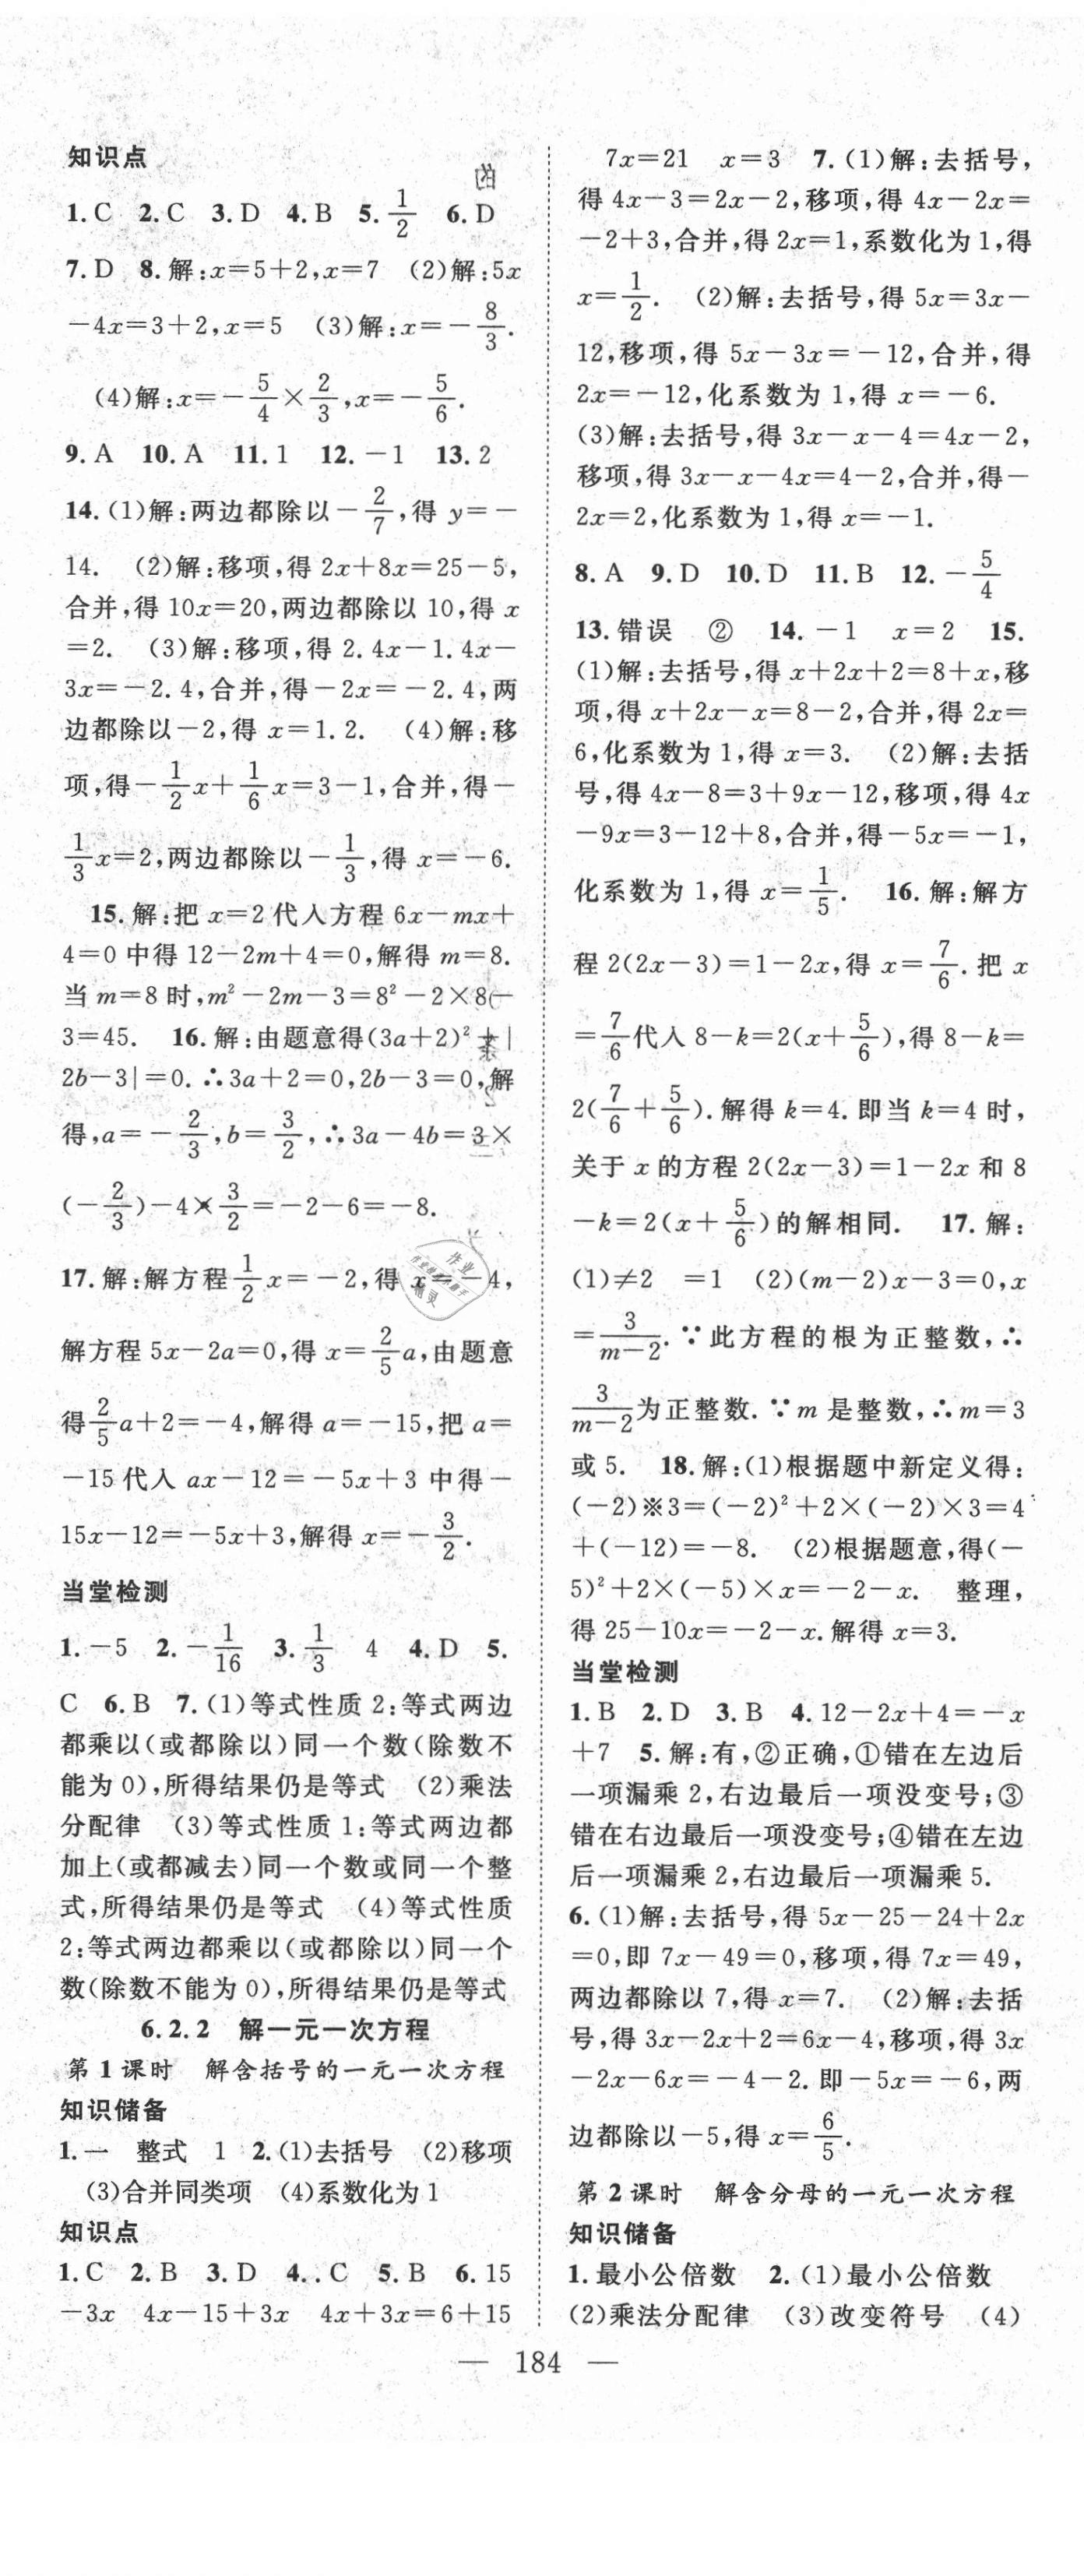 知识点
1.C 2.C 3.D 4.B 5.1/2 6.D
7.D 8.解:x=5+2,x=7 (2)解:5x
-4x=3+2,x=5 (3)解:x=-8/3.
(4)解:x=-5/4×2/3,x=-5/6.
9.A 10.A 11.1 12.-1 13.2
14.(1)解:两边都除以-2/7,得 y=-
14. (2)解:移项,得 2x+8x=25-5,
合并,得 10x=20,两边都除以 10,得 x
=2. (3)解:移项,得 2.4x-1.4x-
3x=-2.4,合并,得-2x=-2.4,两
边都除以-2,得 x=1.2. (4)解:移
项,得-1/2x+1/6x=3-1,合并,得-
1/3x=2,两边都除以-1/3,得 x=-6.
15.解:把 x=2 代入方程 6x-mx+
4=0 中得 12-2m+4=0,解得 m=8.
当 m=8 时,m²-2m-3=8²-2×8-
3=45. 16.解:由题意得(3a+2)²+|
2b-3|=0.∴3a+2=0,2b-3=0,解
得,a=-2/3,b=3/2,∴3a-4b=3×
(-2/3)-4×3/2=-2-6=-8.
17.解:解方程1/2x=-2,得 x=-4,
解方程 5x-2a=0,得 x=2/5a,由题意
得2/5a+2=-4,解得 a=-15,把 a=
-15 代入 ax-12=-5x+3 中得-
15x-12=-5x+3,解得 x=-3/2.
当堂检测
1.-5 2.-1/16 3.1/3 4 4.D 5.
C 6.B 7.(1)等式性质 2:等式两边
都乘以(或都除以)同一个数(除数不
能为 0),所得结果仍是等式 (2)乘法
分配律 (3)等式性质 1:等式两边都
加上(或都减去)同一个数或同一个整
式,所得结果仍是等式 (4)等式性质
2:等式两边都乘以(或都除以)同一个
数(除数不能为 0),所得结果仍是等式
6.2.2 解一元一次方程
第 1 课时 解含括号的一元一次方程
知识储备
1.一 整式 1 2.(1)去括号 (2)移项
(3)合并同类项 (4)系数化为 1
知识点
1.C 2.B 3.D 4..C 5.B 6.15
-3x 4x-15+3x 4x+3x=6+15
7x=21 x=3 7.(1)解:去括号,
得 4x-3=2x-2,移项,得 4x-2x=
-2+3,合并,得 2x=1,系数化为 1,得
x=1/2. (2)解:去括号,得 5x=3x-
12,移项,得 5x-3x=-12,合并,得
2x=-12,化系数为 1,得 x=-6.
(3)解:去括号,得 3x-x-4=4x-2,
移项,得 3x-x-4x=4-2,合并,得-
2x=2,化系数为 1,得 x=-1.
8.A 9.D 10.D 11.B 12.-5/4
13.错误 ② 14.-1 x=2 15.
(1)解:去括号,得 x+2x+2=8+x,移
项,得 x+2x-x=8-2,合并,得 2x=
6,化系数为 1,得 x=3. (2)解:去括
号,得 4x-8=3+9x-12,移项,得 4x
-9x=3-12+8,合并,得-5x=-1,
化系数为 1,得 x=1/5. 16.解:解方
程 2(2x-3)=1-2x,得 x=7/6.把 x
=7/6代入 8-k=2(x+5/6),得 8-k=
2(7/6+5/6).解得 k=4.即当 k=4 时,
关于 x 的方程 2(2x-3)=1-2x 和 8
-k=2(x+5/6)的解相同. 17.解:
(1)≠2 =1 (2)(m-2)x-3=0,x
=3/(m-2).∵此方程的根为正整数,∴
3/(m-2)为正整数.∵m 是整数,∴m=3
或 5. 18.解:(1)根据题中新定义得:
(-2)※3=(-2)²+2×(-2)×3=4
+(-12)=-8. (2)根据题意,得(-
5)²+2×(-5)×x=-2-x. 整理,
得 25-10x=-2-x.解得 x=3.
当堂检测
1.B 2.D 3.B 4.12-2x+4=-x
+7 5.解:有,②正确,①错在左边后
一项漏乘 2,右边最后一项没变号;③
错在右边最后一项没变号;④错在左边
后一项漏乘 2,右边最后一项漏乘 5.
6.(1)解:去括号,得 5x-25-24+2x
=0,即 7x-49=0,移项,得 7x=49,
两边都除以 7,得 x=7. (2)解:去括
号,得 3x-2x+2=6x-4,移项,得 3x
-2x-6x=-4-2.即-5x=-6,两
边都除以-5,得 x=6/5.
第 2 课时 解含分母的一元一次方程
知识储备
1.最小公倍数 2.(1)最小公倍数
(2)乘法分配律 (3)改变符号 (4)
— 184 —